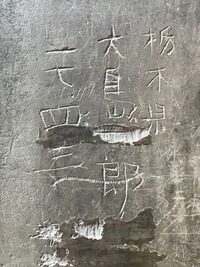 栃木県
大島郎
二七四三